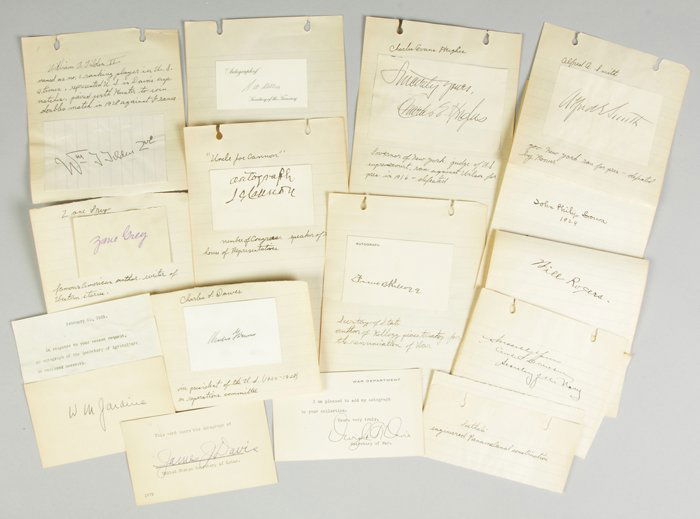 William T. Tilden II
ranked as no. 1 ranking player in the U.S.
times, represented U.S. in Davis cup
matches, paired with Hunter to win
doubles match in 1928 against France
Wm T Tilden 2nd
Autograph of
Secretary of the Treasury
Charles Evans Hughes
Sincerely yours,
Charles E Hughes
Governor of New York, judge of U.S.
supreme court, ran against Wilson for
pres in 1916 - defeated
Alfred E. Smith
Alfred E Smith
gov New York ran for pres - defeated
by Hoover
John Philip Sousa
1924
"Uncle Joe Cannon"
autograph
J G Cannon
member of Congress speaker of
house of Representatives
Zane Grey
Zane Grey
famous American author - writer of
Western stories.
AUTOGRAPH
Frank B Kellogg
Secretary of State
author of Kellogg peace treaty for
the renunciation of War
Will Rogers.
Charles G. Dawes
Charles G Dawes
vice president of the U.S. (1924-1928)
on reparations committee
In response to your recent request,
an autograph of the Secretary of Agriculture
is enclosed herewith.
W M Jardine
Sincerely yours
Curtis D. Wilbur
Secretary of the Navy
WAR DEPARTMENT
I am pleased to add my autograph
to your collection.
Yours very truly,
Dwight F. Davis
Secretary of War.
This card bears the autograph of
James J. Davis
United States Secretary of Labor.
engineered Panama Canal construction